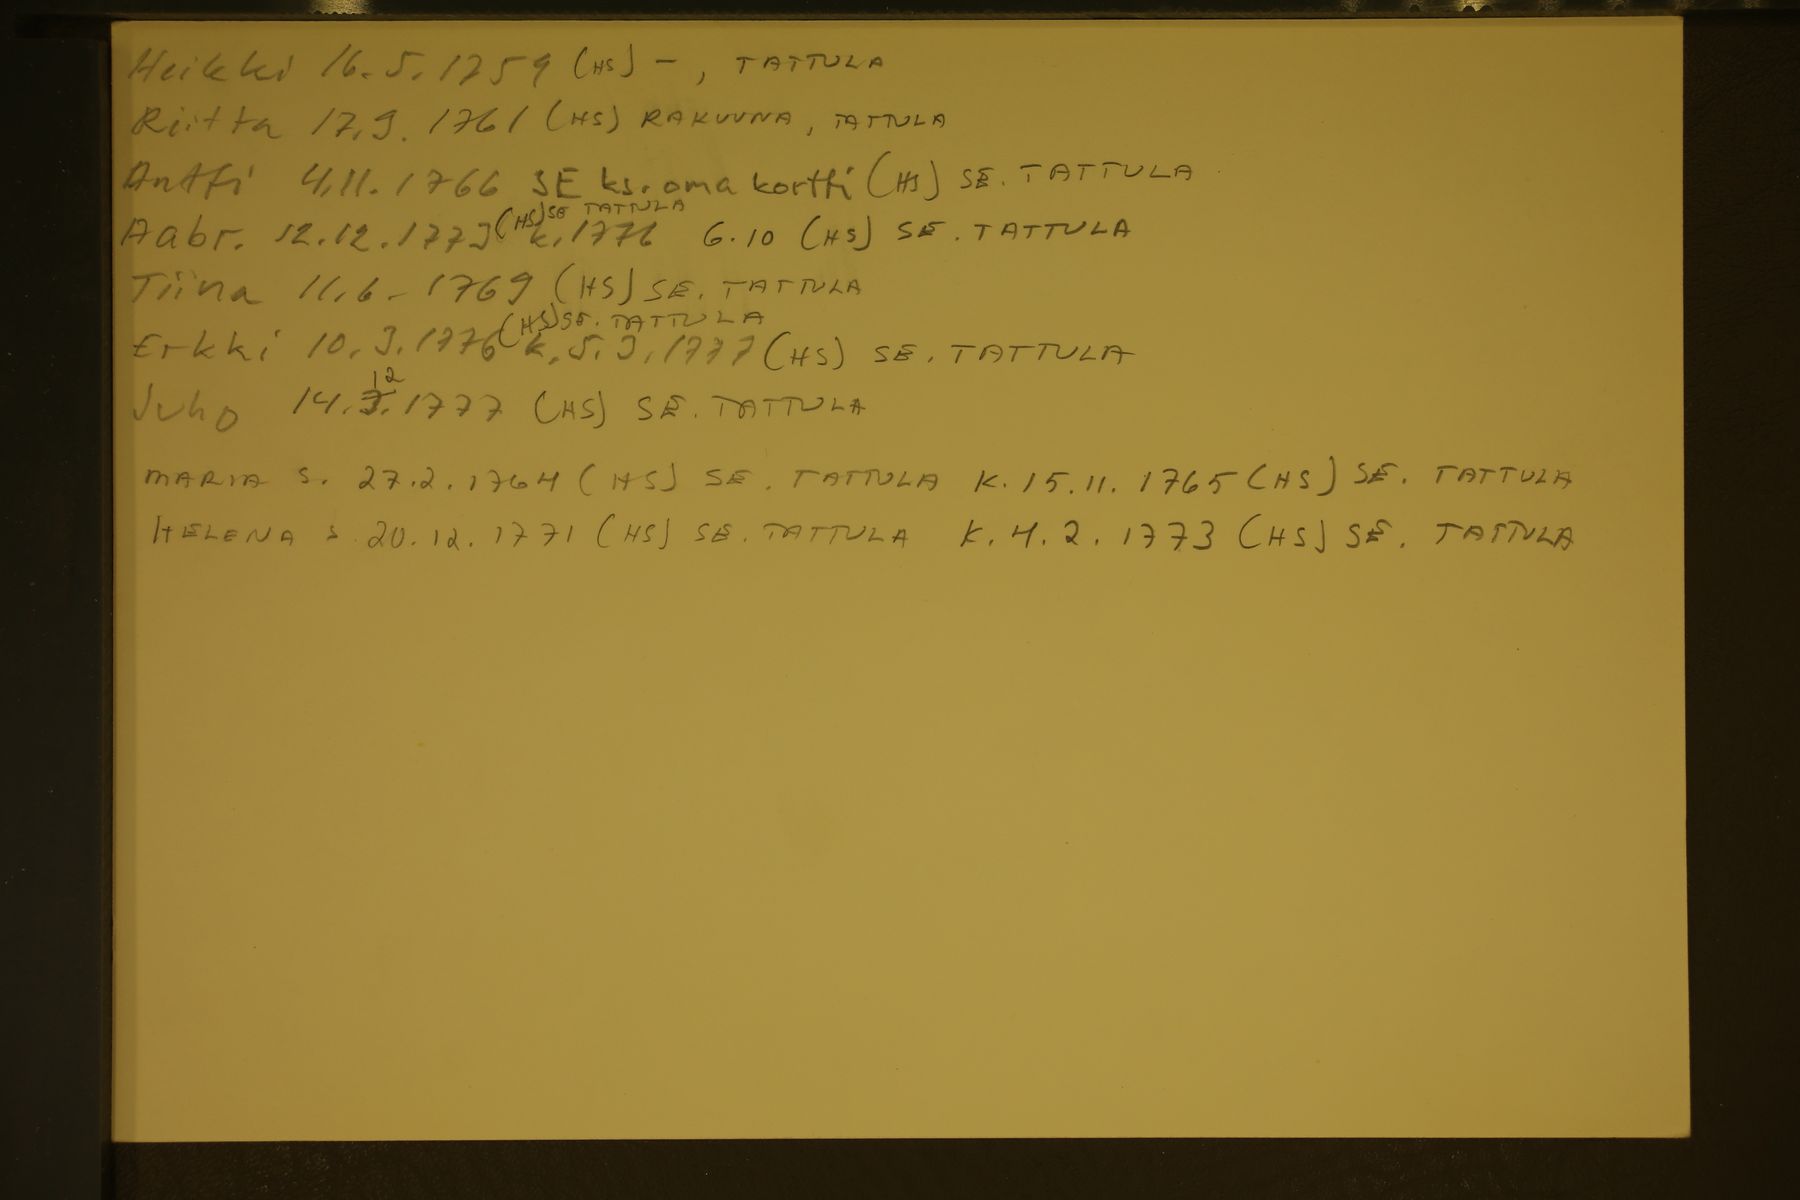 Heikki 16.5.1759 (HS) -, TATTULA
Riitta 17.9.1761 (HS) RAKUUNA, TATTULA
Antti 4.11.1766 SE ks. oma kortti (HS) SE. TATTULA
(HS) SE TATTULA
Aabr. 12.12.1773 k. 1776 6.10 (HS) SE. TATTULA
Tiina 11.6.1769 (HS) SE. TATTULA
(HS) SE. TATTULA
Erkki 10.3.1776 k. 5.3.1777 (HS) SE. TATTULA
12
Juho 14.3.1777 (HS) SE. TATTULA
MARIA S. 27.2.1764 (HS) SE. TATTULA K. 15.11.1765 (HS) SE. TATTULA
HELENA S. 20.12.1771 (HS) SE. TATTULA K. 4.2.1773 (HS) SE. TATTULA